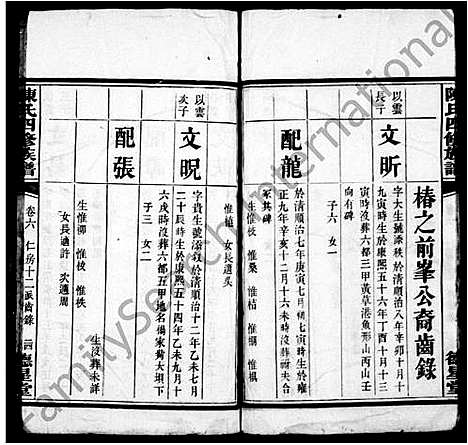 陳氏四修族譜
椿之前峯公裔齒錄
以雲長子
文昕
字大生號添秩於清順治八年辛卯十月十
九寅時生於康熙五十六年丁酉十月十三
寅時沒葬六都三甲黃草港魚形山丙山壬
向有碑
子六 女一
配龍
於清順治七年庚寅七月初七寅時生於雍
正九年辛亥十二月十六未時沒葬
冢其碑
生惟
惟枝
惟桑
惟桔
女長適
以雲次子
文晛
字貴生號添敘於清順治十二年乙未七月
二十辰時生於康熙五十四年乙未九月十
六戌時沒葬六都五甲地名楊家灣大垻下
子三 女二
配張
生沒葬未詳
生惟御 惟枝 惟秩
女長適許 次適周
陳氏四修族譜
卷六 仁房十二派齒錄
四
德星堂
德星堂
FamilySearch International